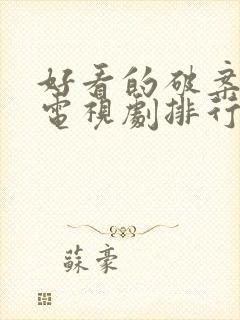 好看的破案
電視劇排行
蘇豪